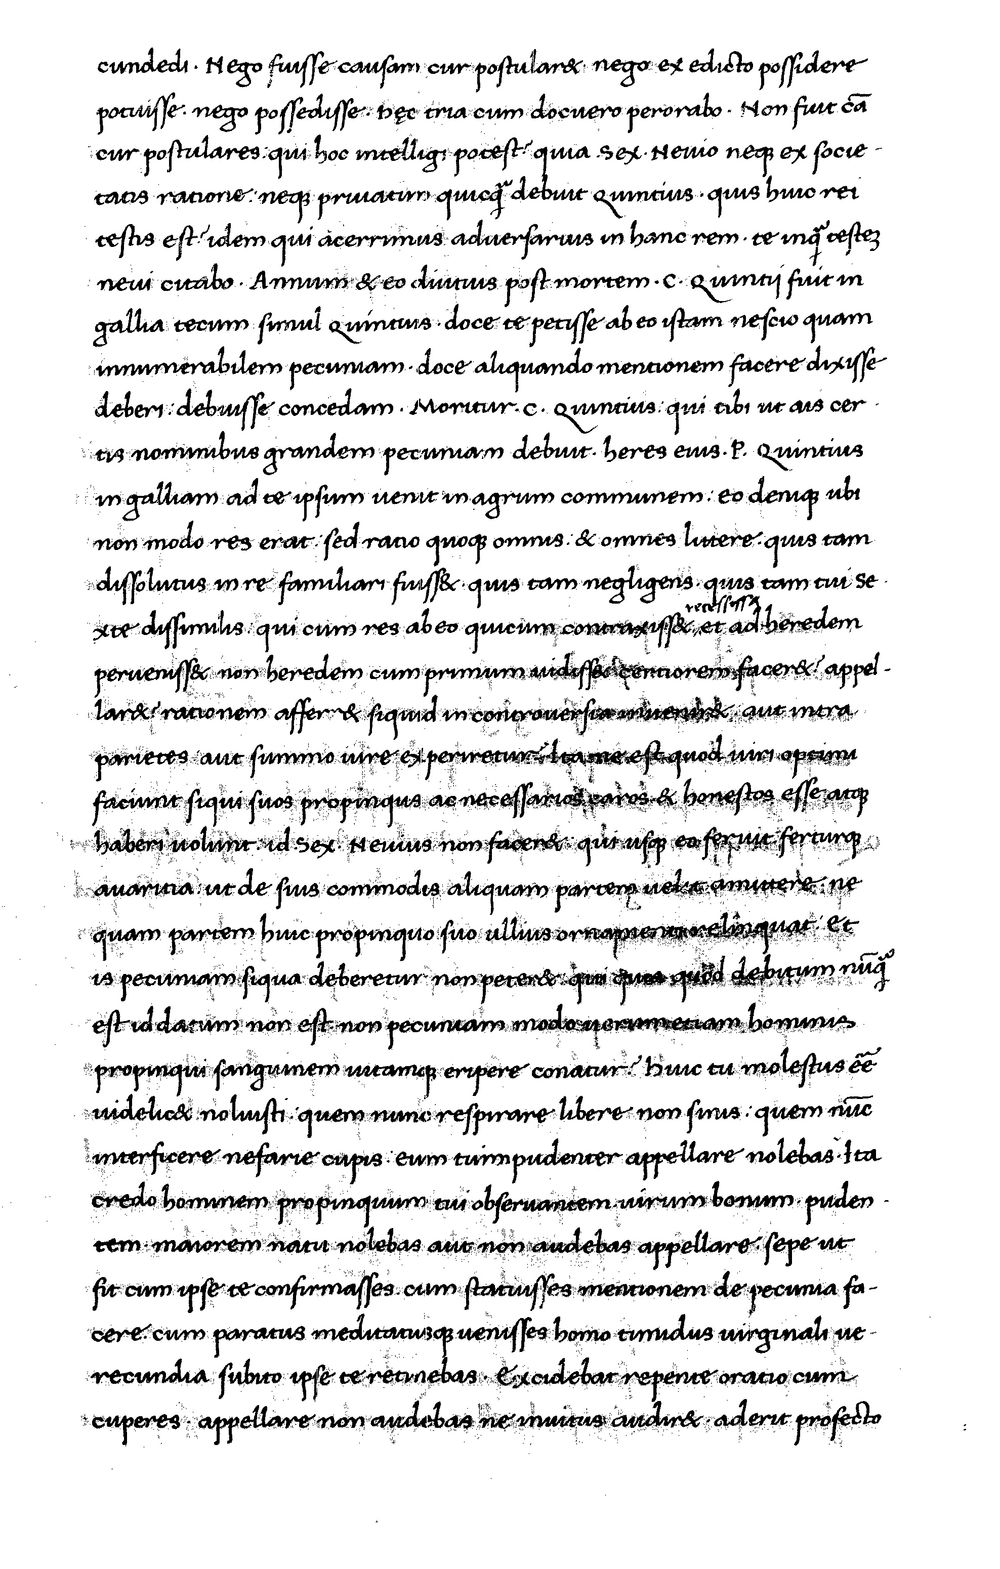 cundedi. Nego fuisse causam cur postular&. nego ex edicto possidere
potuisse. nego possedisse. hęc tria cum docuero perorabo. Non fuit cā
cur postulares. qui hoc intelligi potest? quia Sex. Neuio neqꝫ ex socie-
tatis ratione. neqꝫ priuatim quicqͣ̄ debuit Quintius. quis huic rei
testis est? idem qui acerrimus aduersarius in hanc rem. te inqͣ̄ testeꝫ
neui citabo. Annum & eo diutius post mortem. C. Quintij fuit in
gallia tecum simul Quintius. doce te petisse ab eo istam nescio quam
innumerabilem pecuniam. doce aliquando mentionem facere dixisse
deberi. debuisse concedam. Moritur. C. Quintius. qui tibi ut ais cer-
tis nominibus grandem pecuniam debuit. heres eius. P. Quintius
in galliam ad te ipsum uenit in agrum communem. eo deniqꝫ ubi
non modo res erat. sed ratio quoqꝫ omnis. & omnes littere. quis tam
dissolutus in re familiari fuiss&. quis tam negligens. quis tam tui Se-
xte dissimilis. qui cum res ab eo quicum contraxiss&, et ad heredem
perueniss& non heredem cum primum uidiss& certiorem facer&? appel-
lar&? rationem affer& & siquid in controuersia uenir& aut intra
parietes aut summo iure experiretur? Ita ne est quod uiri optimi
faciunt siqui suos propinqus ac necessarios caros & honestos esse atqꝫ
haberi uolunt. id Sex. Neuius non facer&. qui usqꝫ eo feruit ferturqꝫ
auaritia. ut de suis commodis aliquam partem uelit amittere. ne
quam partem huic propinquo suo ullius ornamenti relinquat. Et
is pecuniam siqua deberetur non peter&. qui quod debitum nūqͣ̄
est id datum non est non pecuniam modo uerum etiam hominis
propinqui sanguinem uitamqꝫ eripere conatur? Huic tu molestus eē̄
uidelic& noluisti. quem nunc respirare libere non sinis. quem nūc
interficere nefarie cupis. eum tum pudenter appellare nolebas. Ita
credo hominem propinquum tui obseruantem. uirum bonum. puden-
tem. maiorem natu nolebas aut non audebas appellare. sepe ut
fit cum ipse te confirmasses. cum statuisses mentionem de pecunia fa-
cere. cum paratus meditatusqꝫ uenisses homo timidus uirginali ue-
recundia subito ipse te retinebas. Excidebat repente oratio cum
cuperes. appellare non audebas ne inuitus audir&. aderit profecto